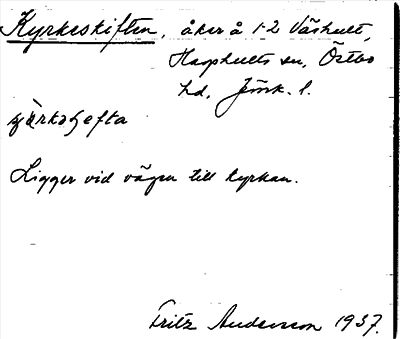 Kyrkeskiften, åker å 1-2 Våshult,
Hagshults sn, Östbo
hd, Jönk. l.
Ligger vid vägen till kyrkan.
Fritz Andersson 1937.